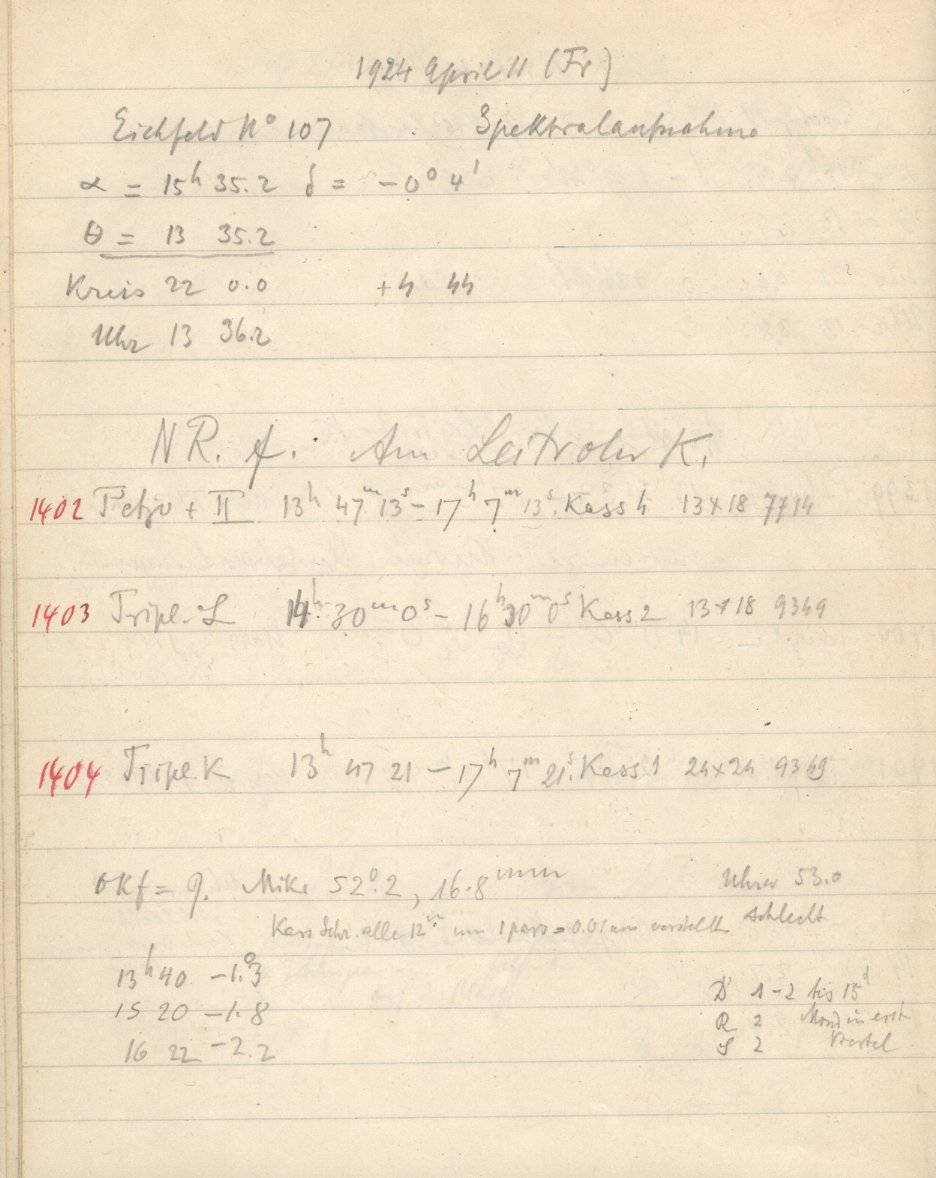 1924 April 11 (Fr)
Eichfeld No 107 Spektralaufnahme
α = 15h 35.2 δ = -0° 4'
θ = 13 35.2
Kreis 22 0.0 +4 44
Uhr 13 36.2
NR. f. Am Leitrohr K.
1402 Petzv + II 13h 47m 13s - 17h 7m 13s. Kass 4 13x18 7714
1403 Tripl. L 14h 30m 0s - 16h 30m 0s Kass 2 13x18 9349
1404 Tripl. K 13h 47 21 - 17h 7m 21s. Kass 1 24x24 9349
OKf = 9. Mikr 52°.2, 16.8mm Uhren 53.0
Kass Schr. alle 12m um 1 pars = 0.01mm verstellt schlecht
13h 40 -1.°3
15 20 -1.8
16 22 -2.2
D 1-2 bis 15
R 2 Mond in erst
S 2 Viertel